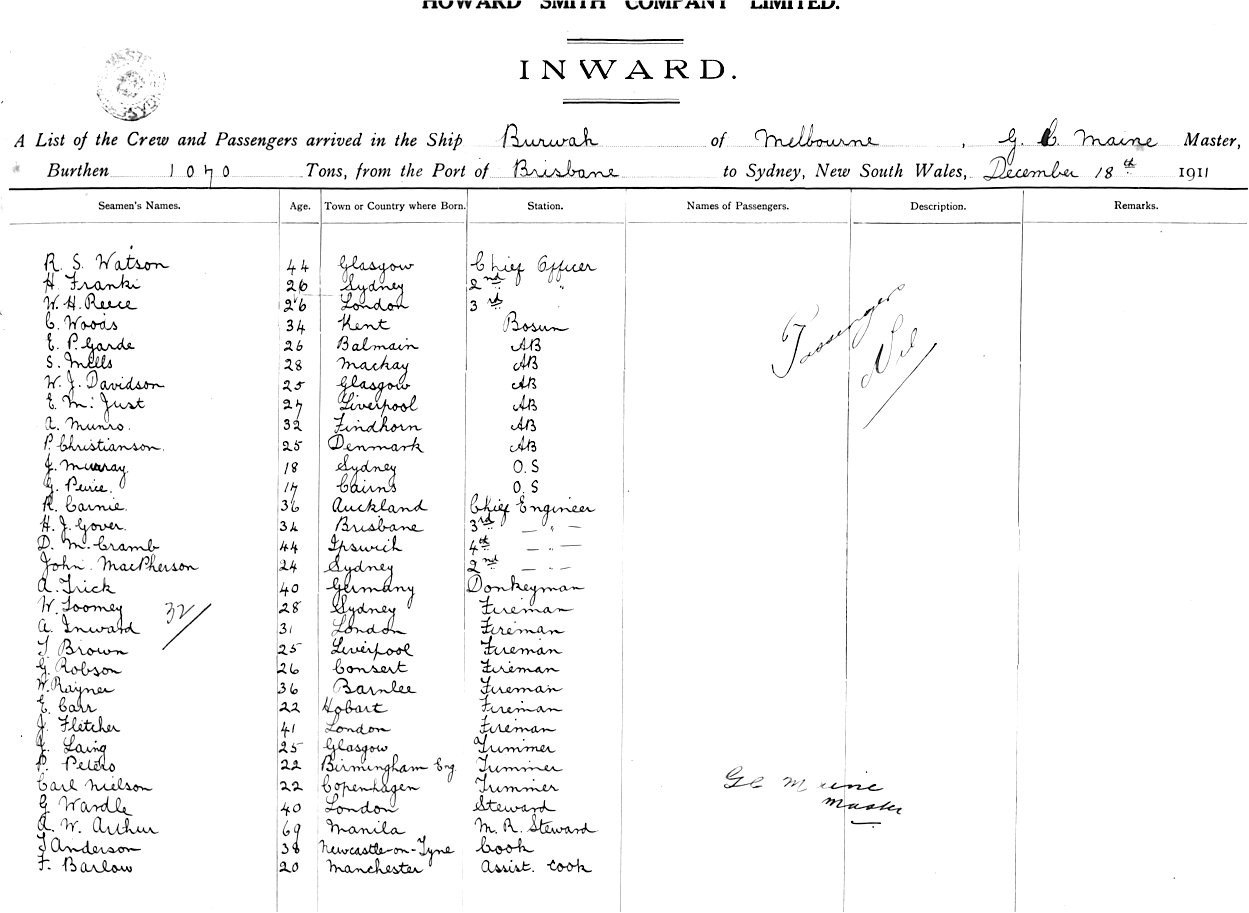 HOWARD SMITH COMPANY LIMITED.
INWARD.
A List of the Crew and Passengers arrived in the Ship Burwah of Melbourne, G. C. Maine Master,
Burthen 1070 Tons, from the Port of Brisbane to Sydney, New South Wales, December 18th 1911
Seamen's Names. Age. Town or Country where Born. Station. Names of Passengers. Description. Remarks.
R. S. Watson 44 Glasgow Chief Officer
H. Franki 26 Sydney 2nd "
W. H. Reece 26 London 3rd
C. Woods 34 Kent Bosun
E. P. Garde 26 Balmain AB
S. Mells 28 Mackay AB
W. J. Davidson 25 Glasgow AB
E. M. Just 27 Liverpool AB
A. Munro. 32 Findhorn AB
P. Christianson. 25 Denmark AB
J. Murray. 18 Sydney O.S
G. Peirce. 17 Cairns O.S
R. Cairnie. 36 Auckland Chief Engineer
H. J. Gover. 34 Brisbane 3rd — " —
D. McCramb 44 Ipswich 4th — " —
John. MacPherson 24 Sydney 2nd — " —
A. Frick 40 Germany Donkeyman
W. Toomey 28 Sydney Fireman
A. Inward 31 London Fireman
T. Brown 25 Liverpool Fireman
G. Robson 26 Consert Fireman
W. Rayner 36 Barnlee Fireman
E. Carr 22 Hobart Fireman
J. Fletcher 41 London Fireman
J. Laing 25 Glasgow Trimmer
P. Peters 22 Birmingham Eng. Trimmer
Carl Nielson 22 Copenhagen Trimmer
G. Wardle 40 London Steward
A. W. Arthur 69 Manila M. R. Steward
T Anderson 38 Newcastle-on-Tyne Cook
F. Barlow 20 Manchester Assist. Cook
32/
Passengers
Nil
G C Maine
Master